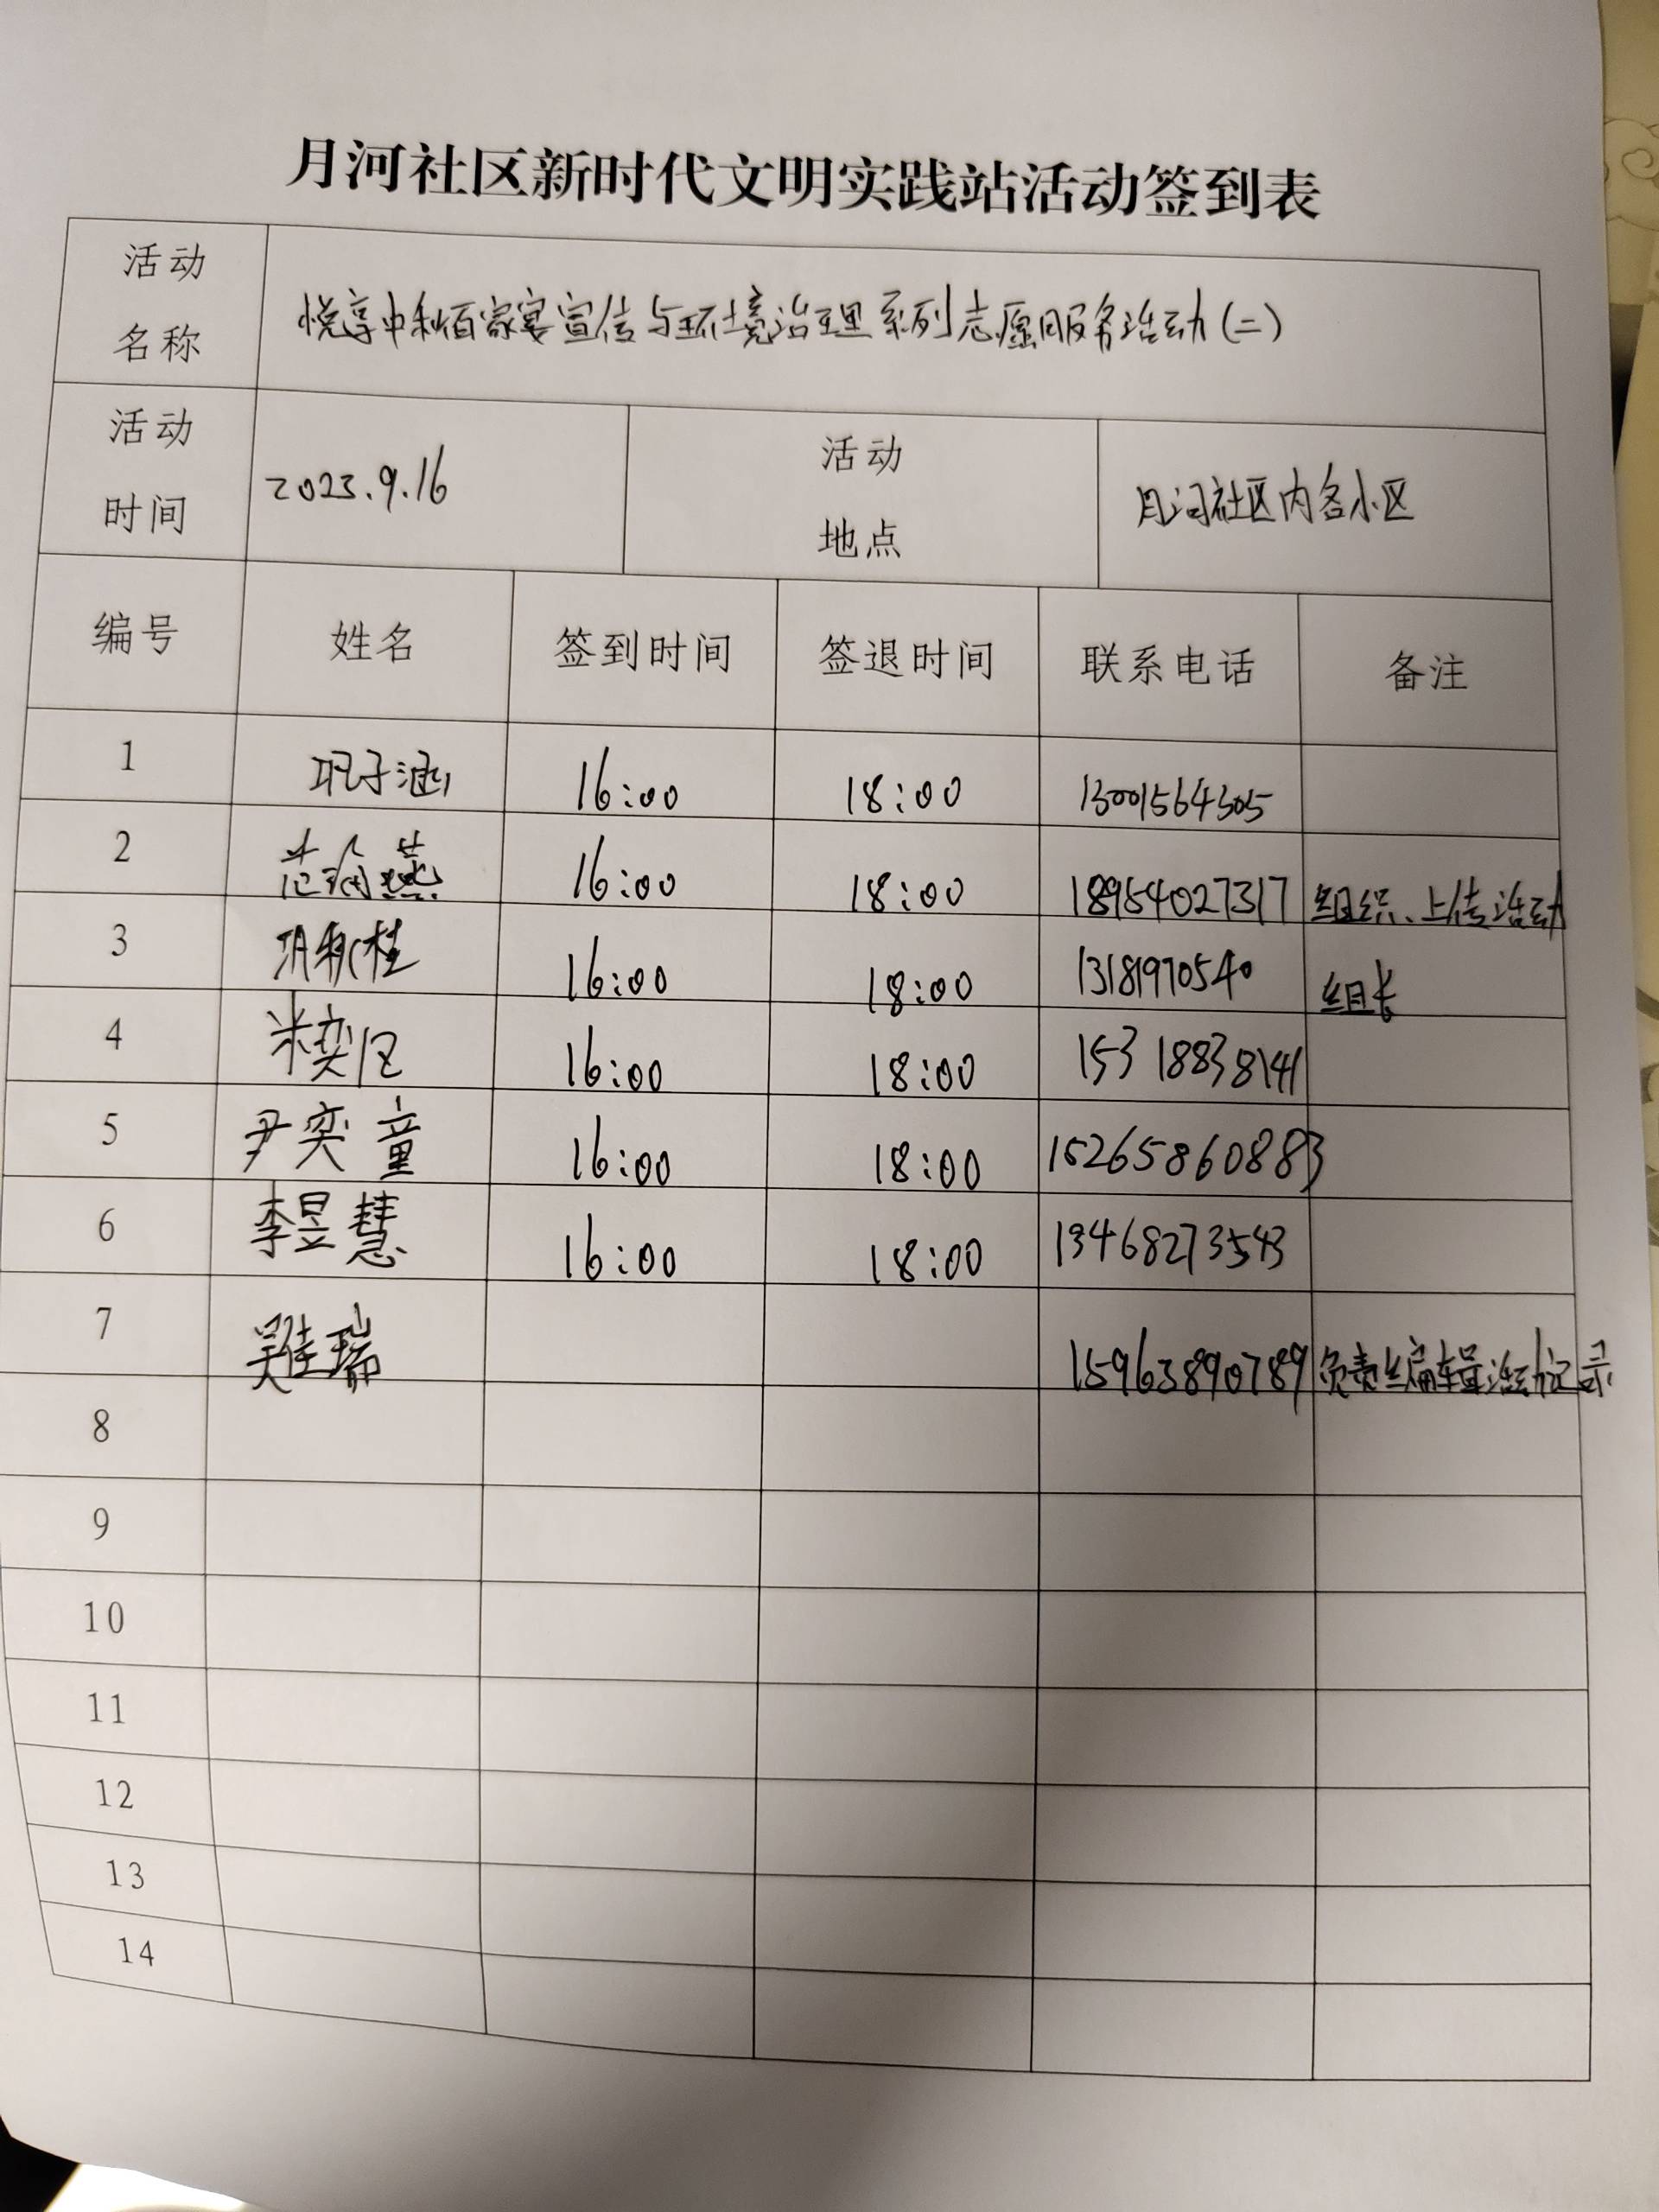 月河社区新时代文明实践站活动签到表
活动名称 悦享中秋百家宴宣传与环境治理系列志愿服务活动(二)
活动时间 2023.9.16 活动地点 月河社区内各小区
编号 姓名 签到时间 签退时间 联系电话 备注
1 巩子涵 16:00 18:00 13001564305
2 范 燕 16:00 18:00 18954027317 组织、上传活动
3 桂 16:00 18:00 13181970540 组长
4 米奕 16:00 18:00 15318838141
5 尹奕童 16:00 18:00 15265860883
6 李昱慧 16:00 18:00 13468273543
7 吴佳瑞 15963890789 负责编辑活动记录
8
9
10
11
12
13
14